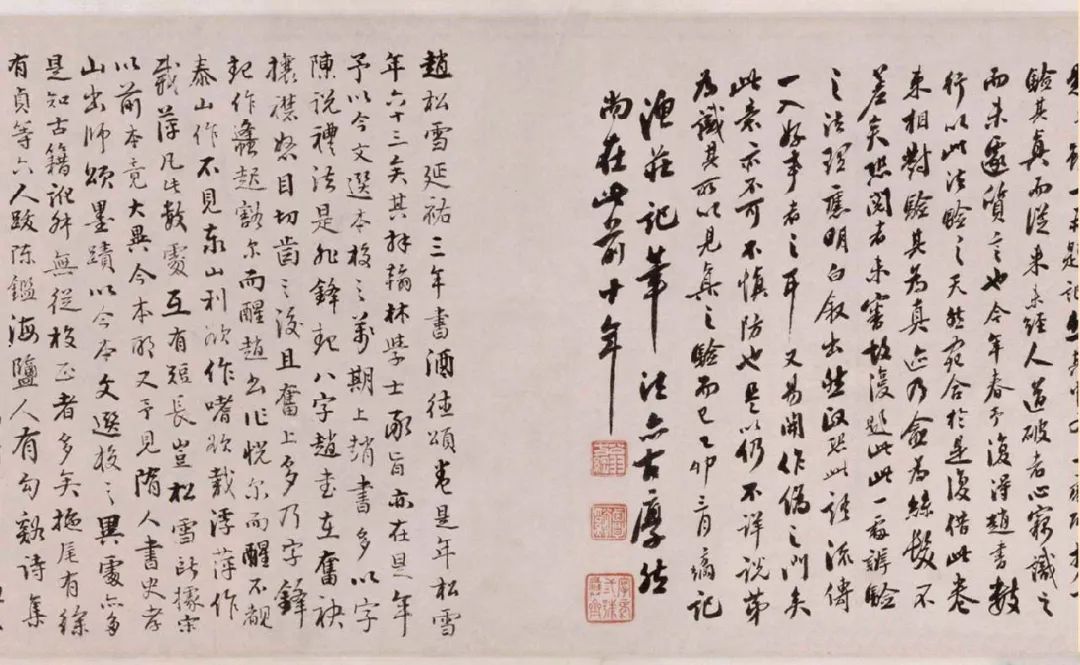 驗其真而從來未經人道破者心竊識之
而未遽質言也今年春予復得趙書數
行以此法驗之天然宛合於是復借此卷
來相對驗其為真迹乃益為絲髮不
差矣然閱者未審故復題此此一段辨驗
之法理應明白敘出然政恐此語流傳
一入好事者之耳又易開作偽之門矣
此意亦不可不慎防也是以仍不詳說第
為識其所以見真之驗而已乙卯三月
漁莊記筆法亦古厚然
尚在此前十年
趙松雪延祐三年書酒德頌卷是年松雪
年六十三矣其拜翰林學士承旨亦在是年
予以今文選本校之萬期上趙書多以字
陳說禮法是非鋒起八字趙書在奮袂
攘襟怒目切齒之後且奮上多乃字鋒
起作蠭起豁尔而醒趙书作恍尔而醒不覩
泰山作不見泰山利欲作嗜欲載浮萍作
載萍凡此數處互有短長豈松雪所據宋
以前本竟大異今本耶又予見隋人書史孝
山出師頌墨蹟以今本文選校之異處亦多
是知古籍訛舛無從校正者多矣拖尾有徐
有貞等六人跋陳鑑海鹽人有勾谿詩集